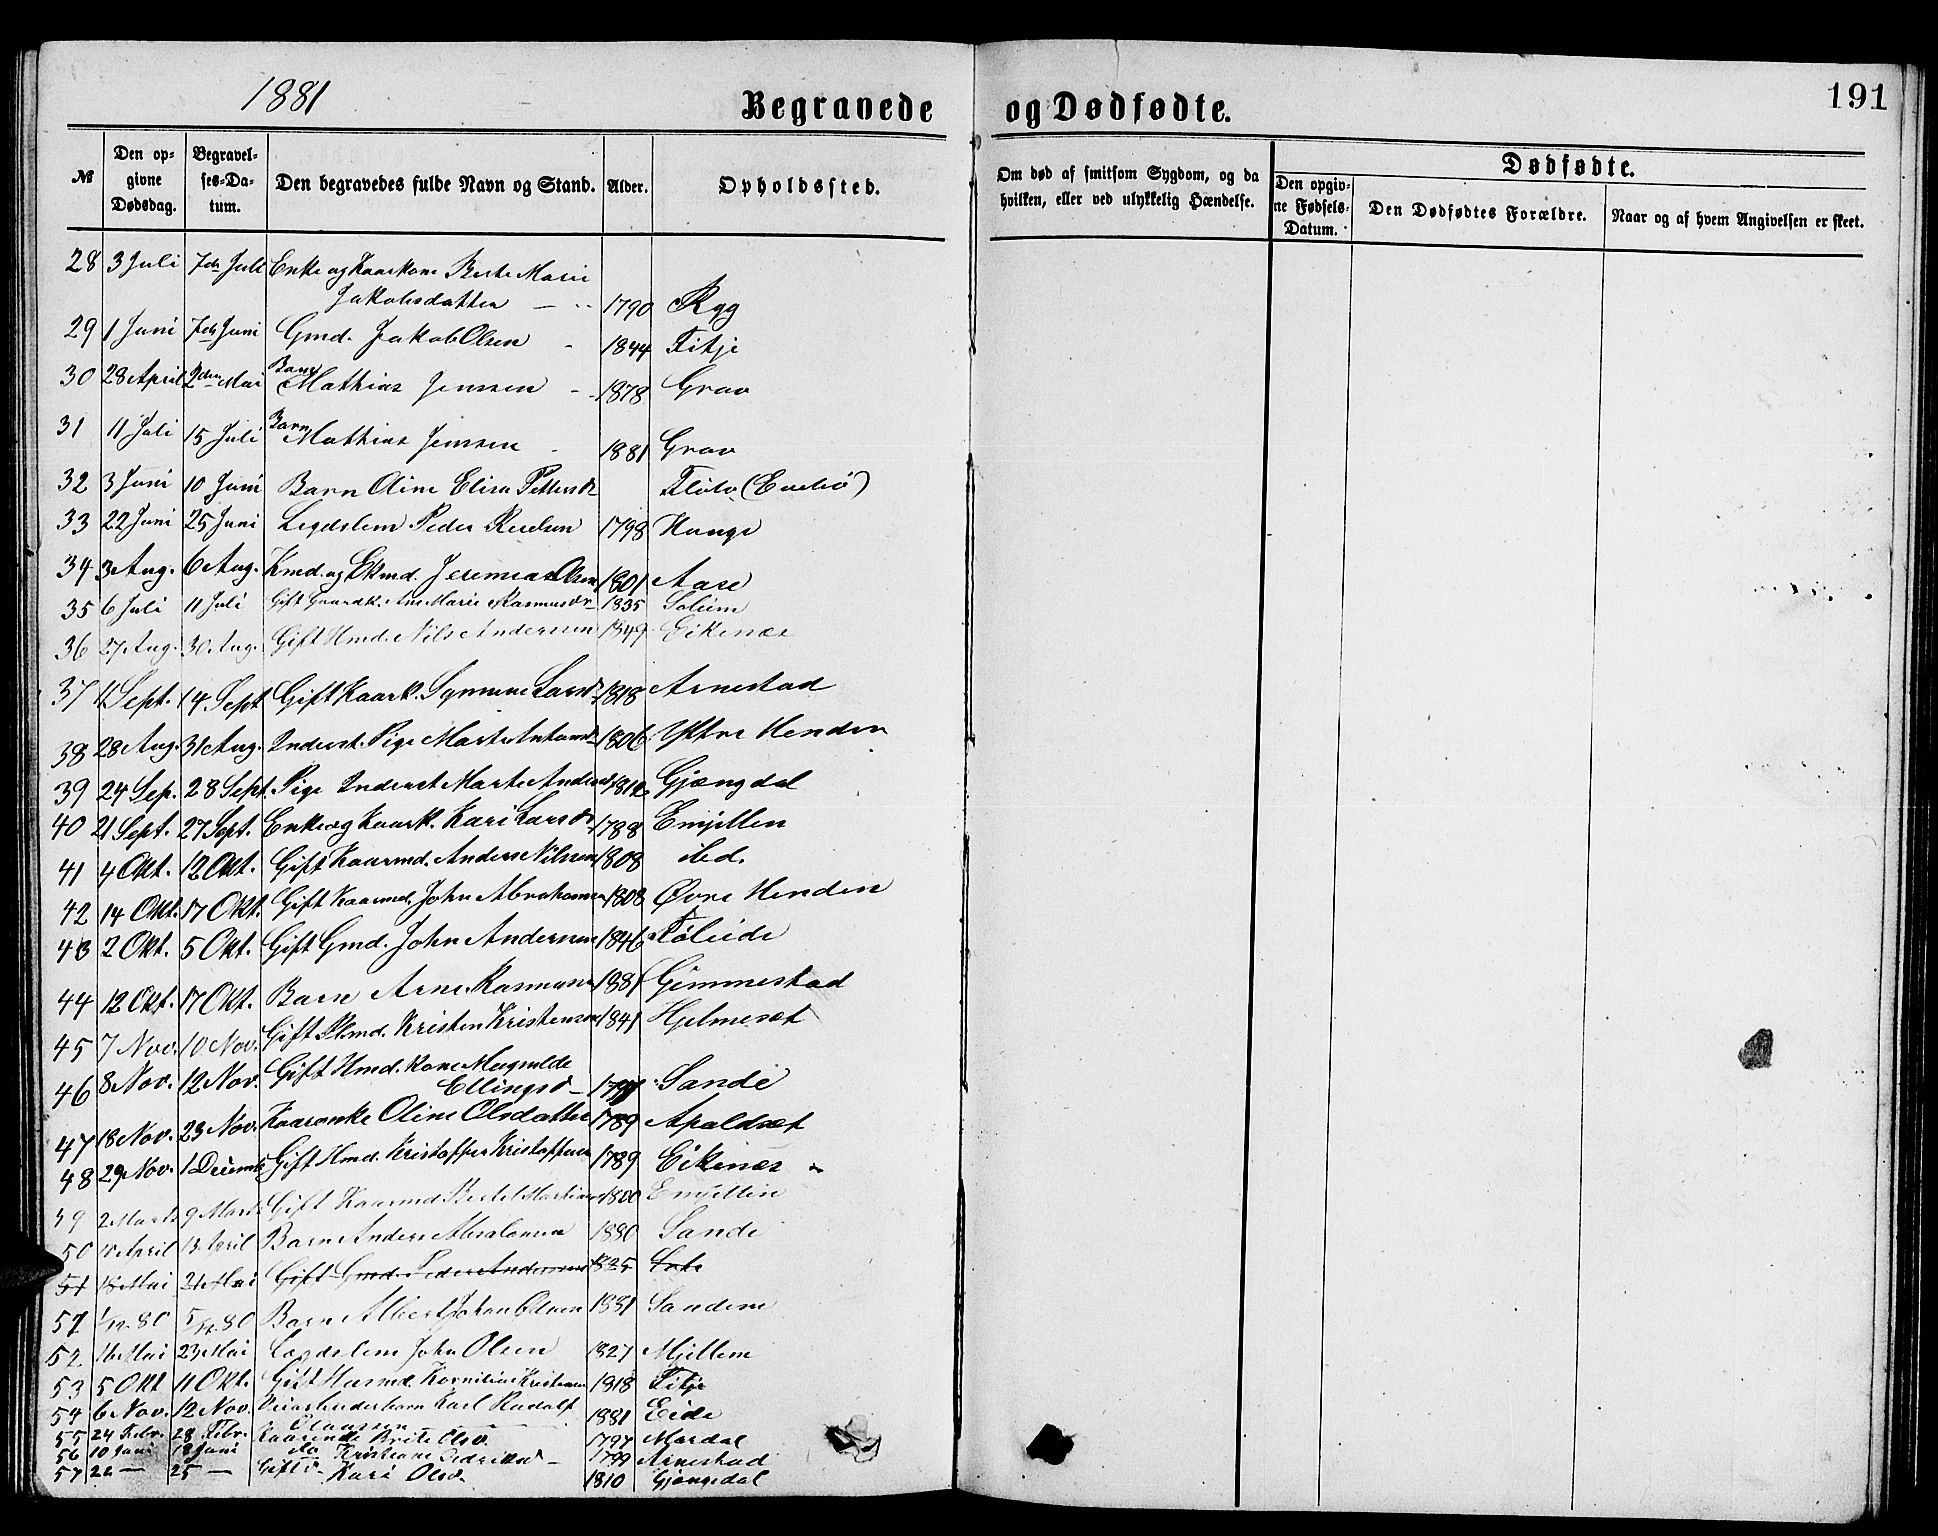 1881
Begravede og Dødfødte.
191
№ Den opgivne Dødsdag. Begravelses-Datum. Den begravedes fulde Navn og Stand. Alder. Opholdssted.
Om død af smitsom Sygdom, og da hvilken, eller ved ulykkelig Hændelse.
Dødfødte.
Den opgivne Fødsels-Datum. Den Dødfødtes Forældre. Naar og af hvem Angivelsen er skeet.
28 3 Juli 7de Juli Enke og Kaarkone Berte Marie
Jakobsdatter 1790 Ryg
29 1 Juni 7de Juni Gmd. Jakob Olsen 1844 Fitje
30 28 April 2den Mai Barn Mathias Jenssen 1878 Grav
31 11 Juli 15 Juli Barn Mathias Jenssen 1881 Grav
32 3 Juni 10 Juni Barn Oline Elisa Pettersdr
33 22 Juni 25 Juni Legdslem Peder 1798 Hauge
34 3 Aug. 6 Aug. Kmd. og Ekmd. Jeremias Olsen 1801 Aase
35 6 Juli 11 Juli Gift Ane Marie Rasmusdr 1835 Soleim
36 27 Aug. 30 Aug. Gift Hmd. Nils Anderssen 1849 Eikenæs
37 11 Sept. 14 Sept Gift Kaark. Synneve Larsdr 1818 Arnestad
38 28 Aug. 31 Aug. Inderst. Pige Marte Antonsdr 1806 Yttre Henden
39 24 Sep. 28 Sept. Pige Inderst Marte Andersdr 1812 Gjængdal
40 21 Sept. 27 Sept. Enke og Kaark. Kari Larsdr 1788 Emjellen
41 4 Okt. 12 Okt. Gift Kaarmd. Anders Nilssen 1808 ibd.
42 14 Okt. 17 Okt. Gift Kaarmd. John Abrahamsen 1808 Øvre Henden
43 2 Okt. 5 Okt. Gift Gmd. John Anderssen 1846 Føleide
44 12 Okt. 17 Okt. Barn Arne Rasmussen 1881 Gimmestad
45 7 Nov. 10 Nov. Gift Plmd. Kristen Kristensen 1841 Hjelmeset
46 8 Nov. 12 Nov. Gift Hmd. Kone Magnilde
Ellingsdr Sande
47 18 Nov. 23 Nov. Kaarenke Oline Olsdatter 1789 Apaldset
48 29 Nov. 1 Decemb Gift Hmd. Kristoffer Kristoffersen 1789 Eikenæs
49 2 Marts 9 Marts Gift Kaarmd Bertel Martinus 1800 Emjellen
50 10 April 13 April Barn Anders Absalonsen 1880 Sande
51 18 Mai 21 Mai Gift Gmd. Peder Andersen 1825
51 1/12 80 5/12 80 Barn Albert Johan Olsen 1881 Sandene
52 16 Mai 23 Mai Lægdslem John Olsen 1827 Mjellem
53 5 Okt 11 Okt. Gift Husmd. Kornelius Kristensen 1818 Fitje
54 6 Nov. 12 Nov. Karl Rudolf
Claussen 1881 Eide
55 24 Febr. 28 Febr. Kaarenke Brite Olsdr. 1797 Mardal
56 10 Juni 18 Juni do Kristiane 1799 Arnestad
57 22 — 25 — Gift Kari Olsdr. 1810 Gjengedal